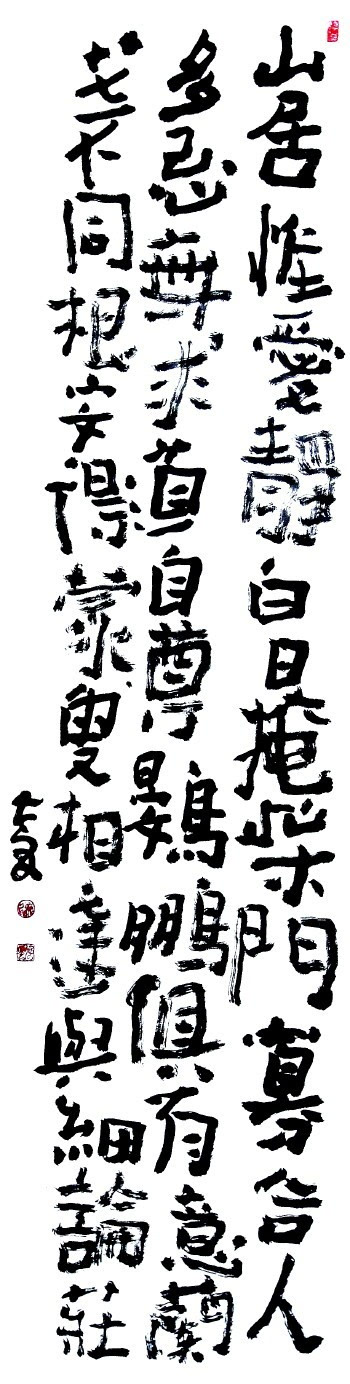 山居惟愛靜白日掩柴門寡合人
多忌無求道自尊鷃鵬俱有意蘭
艾不同根安得蒙叟相逢與細論莊